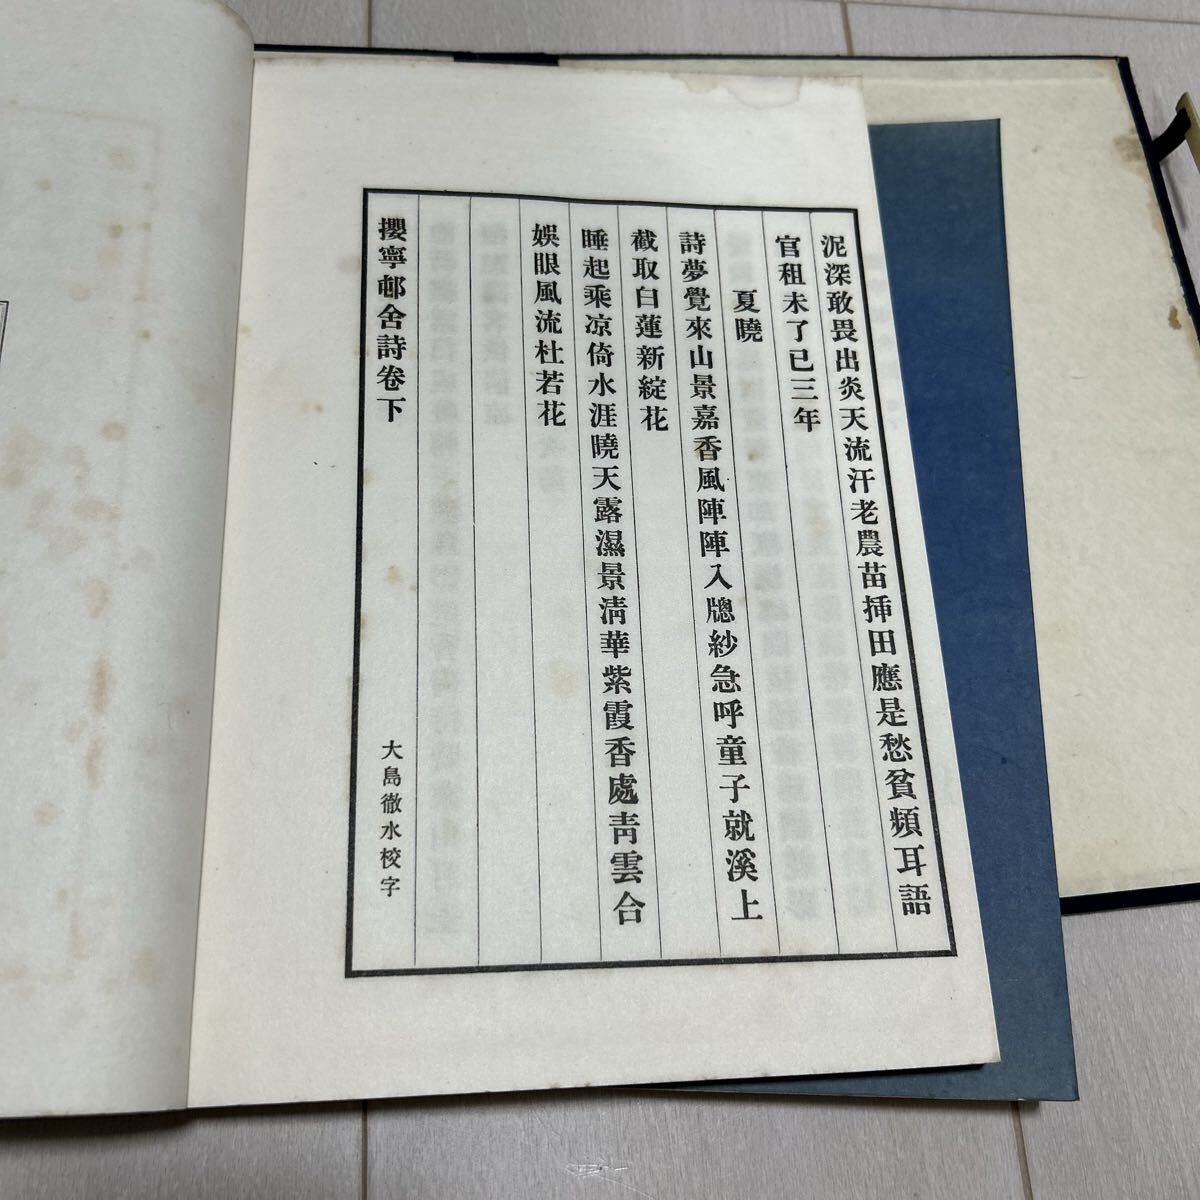 泥深敢畏出炎天流汗老農苗揷田應是愁貧頻耳語
官租未了已三年
夏曉
詩夢覺來山景嘉香風陣陣入牕紗急呼童子就溪上
截取白蓮新綻花
睡起乘凉倚水涯曉天露濕景淸華紫霞香處靑雲合
娛眼風流杜若花
攖寧邨舍詩卷下
大島徹水校字